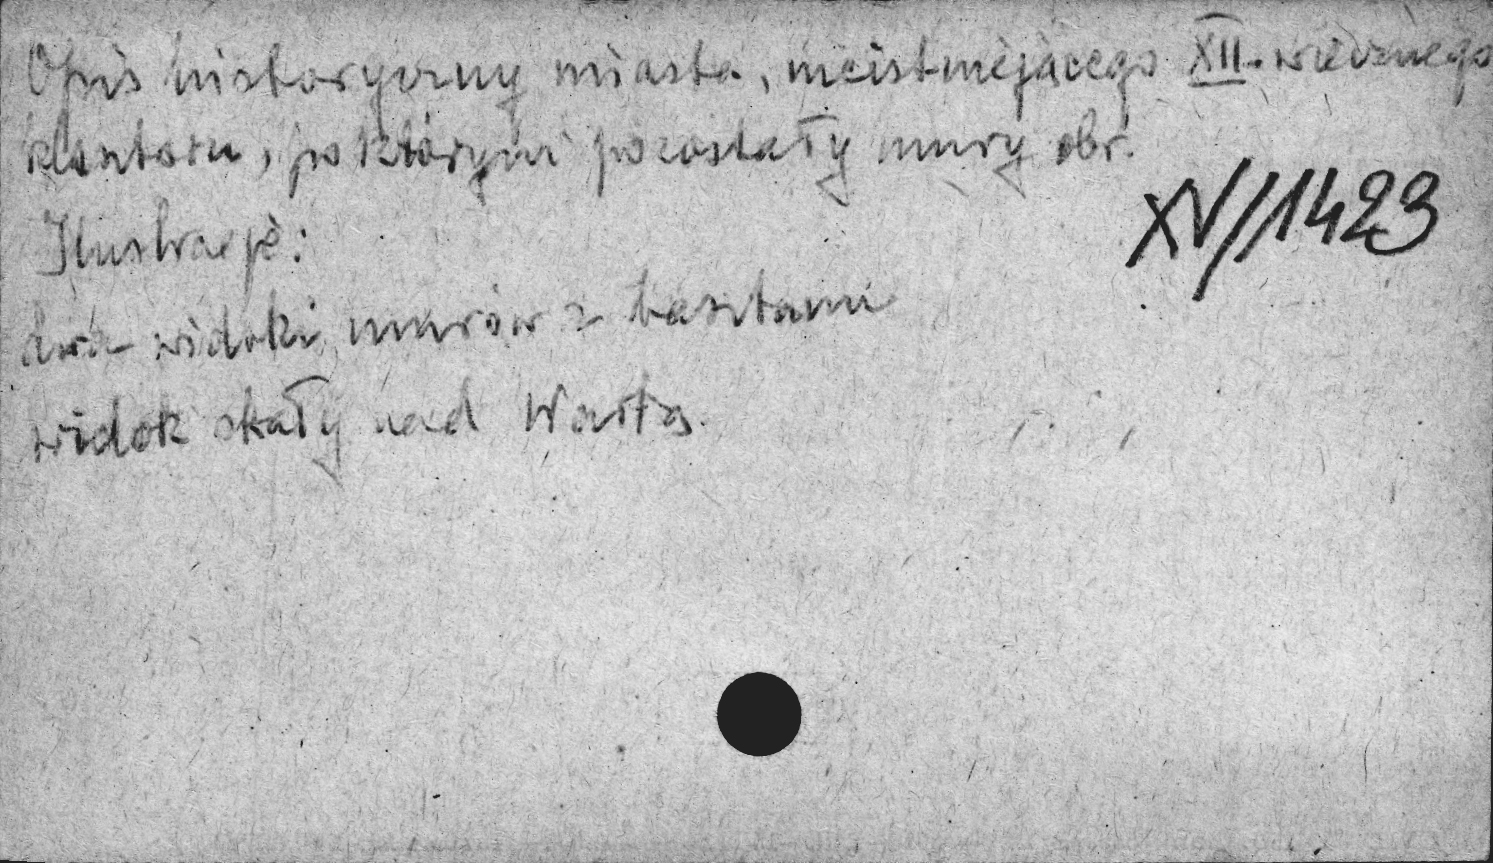 Opis historyczny miasta, nieistniejącego XII. wiecznego
klasztoru, po którym pozostały mury obr.
XV//1423
Ilustracje:
dwa widoki murów z basztami
widok skały nad Wartą.